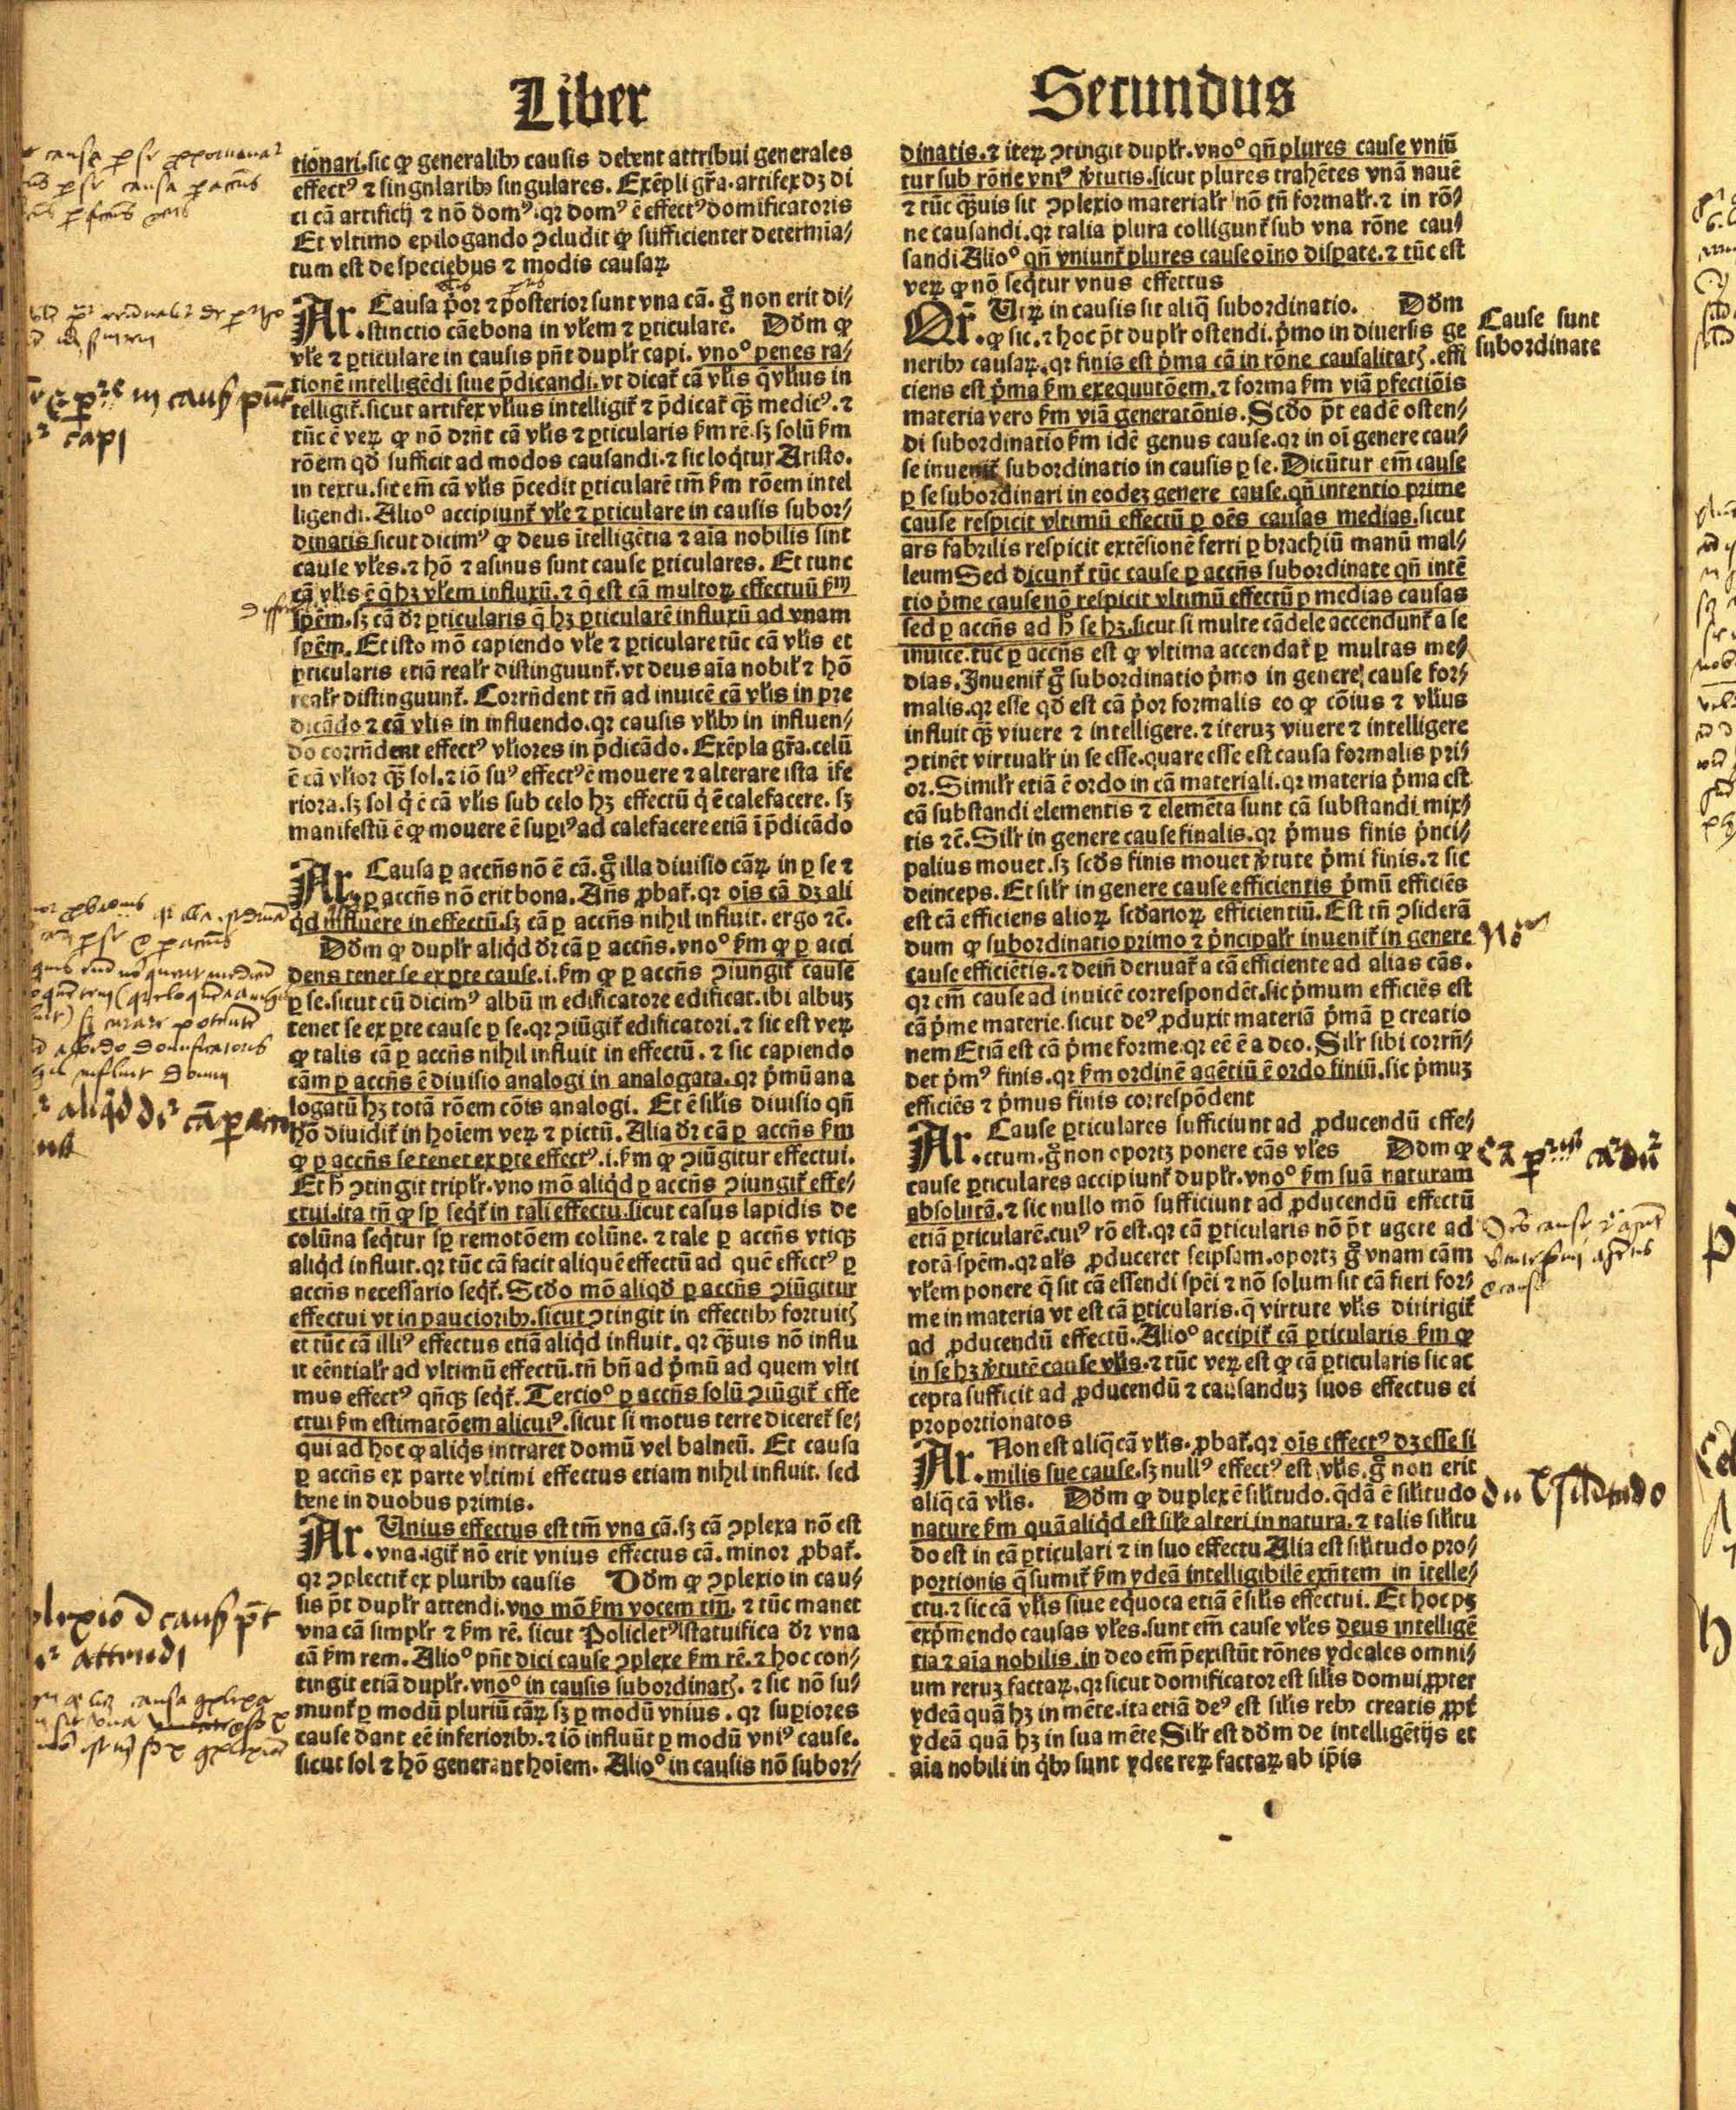 Liber
tionari.sic ꝙ generalibꝰ causis debent attribui generales
effectꝰ ⁊ singularibꝰ singulares. Exēpli gr̄a. artifex dꝫ di
ci cā artificij ⁊ nō domꝰ. qꝛ domꝰ ē effectꝰ domificatoris
Et vltimo epilogando ↄcludit ꝙ sufficienter determīa⸗
tum est de speciebus ⁊ modis causaꝝ
Ar. Causa p̄or ⁊ posterior sunt vna cā. g̊ non erit di⸗
stinctio cāe bona in vl̄em ⁊ ꝑticularē. Dd̄m ꝙ
vl̄e ⁊ ꝑticulare in causis pn̄t dupl̄r capi. vno° penes ra⸗
tionē intelligēdi siue p̄dicandi. vt dicat̄ cā vl̄is q̄ vl̄ius in
telligit̄. sicut artifex vl̄ius intelligit̄ ⁊ p̄dicat̄ qꝫ̄ medicꝰ. ⁊
tūc ē veꝝ ꝙ nō dr̄nt cā vl̄is ⁊ ꝑticularis ẜm rē. sꝫ solū ẜm
rōem qd̄ sufficit ad modos causandi. ⁊ sic loq̇tur Aristo.
in textu. sic em̄ cā vl̄is p̄cedit ꝑticularē tm̄ ẜm rōem intel
ligendi. Alio° accipiunt̄ vl̄e ⁊ ꝑticulare in causis subor⸗
dinatis sicut dicimꝰ ꝙ deus ītelligētia ⁊ aīa nobilis sint
cause vl̄es. ⁊ hō ⁊ asinus sunt cause ꝑticulares. Et tunc
cā vl̄is ē q̄ hꝫ vl̄em influxū. ⁊ q̄ est cā multoꝝ effectuū ẜm
spēm. sꝫ cā dr̄ ꝑticularis q̄ hꝫ ꝑticularē influxū ad vnam
spēm. Et isto mō capiendo vl̄e ⁊ ꝑticulare tūc cā vl̄is et
ꝑticularis etiā real̄r distinguunt̄. vt deus aīa nobil̄ ⁊ hō
real̄r distinguunt̄. Corrn̄dent tn̄ ad inuicē cā vl̄is in pre
dicādo ⁊ cā vl̄is in influendo. qꝛ causis vl̄ibꝰ in influen⸗
do corrn̄dent effectꝰ vl̄iores in p̄dicādo. Exēpla gr̄a. celū
ē cā vl̄ior qꝫ̄ sol. ⁊ iō suꝰ effectꝰ ē mouere ⁊ alterare ista īfe
riora. sꝫ sol q̇ ē cā vl̄is sub celo hꝫ effectū q̇ ē calefacere. sꝫ
manifestū ē ꝙ mouere ē suꝑiꝰ ad calefacere etiā ī p̄dicādo
Ar. Causa ꝑ accn̄s nō ē cā. g̊ illa diuisio cāꝝ in ꝑ se ⁊
ꝑ accn̄s nō erit bona. Ans ꝓbat̄. qꝛ ois cā dꝫ ali
qd influere in effectū. sꝫ cā ꝑ accn̄s nihil influit. ergo ⁊c̄.
Dd̄m ꝙ dupl̄r aliqd dr̄ cā ꝑ accn̄s. vno° ẜm ꝙ ꝑ acci
dens tenet se ex ꝑte cause. i. ẜm ꝙ ꝑ accn̄s ↄiungit̄ cause
ꝑ se. sicut cū dicimꝰ albū in edificatore edificat. ibi albuꝫ
tenet se ex ꝑte cause ꝑ se. qꝛ ↄiūgit̄ edificatori. ⁊ sic est veꝝ
ꝙ talis cā ꝑ accn̄s nihil influit in effectū. ⁊ sic capiendo
cām ꝑ accn̄s ē diuisio analogi in analogata. qꝛ p̄mū ana
logatū hꝫ totā rōem cōis analogi. Et ē sil̄is diuisio qn̄
hō diuidit̄ in hoīem veꝝ ⁊ pictū. Alia dr̄ cā ꝑ accn̄s ẜm
ꝙ ꝑ accn̄s se tenet ex ꝑte effectꝰ. i. ẜm ꝙ ↄiūgitur effectui.
Et h̄ ↄtingit tripl̄r. vno mō aliqd ꝑ accn̄s ↄiungit̄ effe⸗
ctui. ita tn̄ ꝙ sꝑ seqt̄ in tali effectu. sicut casus lapidis de
colūna seq̇tur sꝑ remotōem colūne. ⁊ tale ꝑ accn̄s vtiqꝫ
aliqd influit. qꝛ tūc cā facit aliquē effectū ad quē effectꝰ ꝑ
accn̄s necessario seqt̄. Scd̄o mō aliqd ꝑ accn̄s ↄiūgitur
effectui vt in paucioribꝰ. sicut ↄtingit in effectibꝰ fortuitꝭ
et tūc cā illiꝰ effectus etiā aliqd influit. qꝛ qꝫ̄uis nō influ
it eēntial̄r ad vltimū effectū. tn̄ bn̄ ad p̄mū ad quem vlti
mus effectꝰ qn̄qꝫ seqt̄. Tercio° ꝑ accn̄s solū ↄiūgit̄ effe
ctui ẜm estimatōem alicuiꝰ. sicut si motus terre diceret̄ se⸗
qui ad hoc ꝙ aliq̇s intraret domū vel balneū. Et causa
ꝑ accn̄s ex parte vltimi effectus etiam nihil influit. sed
bene in duobus primis.
Ar. Unius effectus est tm̄ vna cā. sꝫ cā ↄplexa nō est
vna. igit̄ nō erit vnius effectus cā. minor ꝓbat̄.
qꝛ ↄplectit̄ ex pluribꝰ causis Dd̄m ꝙ ↄplexio in cau⸗
sis p̄t dupl̄r attendi. vno mō ẜm vocem tm̄. ⁊ tūc manet
vna cā simpl̄r ⁊ ẜm rē. sicut Policletꝰ statuifica dr̄ vna
cā ẜm rem. Alio° pn̄t dici cause ↄplexe ẜm rē. ⁊ hoc con⸗
tingit etiā dupl̄r. vno° in causis subordinatꝭ. ⁊ sic nō su⸗
munt̄ ꝑ modū pluriū cāꝝ sꝫ ꝑ modū vnius. qꝛ suꝑiores
cause dant eē inferioribꝰ. ⁊ iō influūt ꝑ modū vniꝰ cause.
sicut sol ⁊ hō generant hoīem. Alio° in causis nō subor⸗
Secundus
dinatis. ⁊ iteꝝ ↄtingit dupl̄r. vno° qn̄ plures cause vniū
tur sub rōne vniꝰ v̄tutis. sicut plures trahētes vnā nauē
⁊ tūc qꝫ̄uis sit ↄplexio material̄r nō tn̄ formal̄r. ⁊ in rō⸗
ne causandi. qꝛ talia plura colligunt̄ sub vna rōne cau⸗
sandi Alio° qn̄ vniunt̄ plures cause oīno dispate. ⁊ tūc est
veꝝ ꝙ nō seq̇tur vnus effectus
Qr̄. Utꝝ in causis sit aliq̄ subordinatio. Dd̄m
ꝙ sic. ⁊ hoc p̄t dupl̄r ostendi. p̄mo in diuersis ge
neribꝰ causaꝝ. qꝛ finis est p̄ma cā in rōne causalitatꝭ. effi
ciens est p̄ma ẜm exequutōem. ⁊ forma ẜm viā ꝑfectiōis
materia vero ẜm viā generatōnis. Scd̄o p̄t eadē osten⸗
di subordinatio ẜm idē genus cause. qꝛ in oī genere cau⸗
se inuenit̄ subordinatio in causis ꝑ se. Dicūtur em̄ cause
ꝑ se subordinari in eodeꝫ genere cause. qn̄ intentio prime
cause respicit vltimū effectū ꝑ oēs causas medias. sicut
ars fabrilis respicit extēsionē ferri ꝑ brachiū manū mal⸗
leum Sed dicunt̄ tūc cause ꝑ accn̄s subordinate qn̄ intē
tio p̄me cause nō respicit vltimū effectū ꝑ medias causas
sed ꝑ accn̄s ad h̄ se hꝫ. sicut si multe cādele accendunt̄ a se
inuicē. tūc ꝑ accn̄s est ꝙ vltima accendat̄ ꝑ multas me⸗
dias. Inuenit̄ g̊ subordinatio p̄mo in genere cause for⸗
malis. qꝛ esse qd̄ est cā p̄or formalis eo ꝙ cōius ⁊ vl̄ius
influit qꝫ̄ viuere ⁊ intelligere. ⁊ iteruꝫ viuere ⁊ intelligere
ↄtinēt virtual̄r in se esse. quare esse est causa formalis pri⸗
or. Simil̄r etiā ē ordo in cā materiali. qꝛ materia p̄ma est
cā substandi elementis ⁊ elemēta sunt cā substandi mix⸗
tis ⁊c̄. Sil̄r in genere cause finalis. qꝛ p̄mus finis p̄nci⸗
palius mouet. sꝫ scd̄s finis mouet v̄tute p̄mi finis. ⁊ sic
deinceps. Et sil̄r in genere cause efficientis p̄mū efficiēs
est cā efficiens alioꝝ scd̄arioꝝ efficientiū. Est tn̄ ↄsiderā
dum ꝙ subordinatio primo ⁊ p̄ncipal̄r inuenit̄ in genere
cause efficiētis. ⁊ dein̄ deriuat̄ a cā efficiente ad alias cās.
qꝛ em̄ cause ad inuicē correspondēt. sic p̄mum efficiēs est
cā p̄me materie. sicut deꝰ ꝓduxit materiā p̄mā ꝑ creatio
nem Etiā est cā p̄me forme. qꝛ eē ē a deo. Sil̄r sibi corrn̄⸗
det p̄mꝰ finis. qꝛ ẜm ordinē agētiū ē ordo finiū. sic p̄muꝫ
efficiēs ⁊ p̄mus finis correspōdent
Ar. Cause ꝑticulares sufficiunt ad ꝓducendū effe⸗
ctum. g̊ non oportꝫ ponere cās vl̄es Dd̄m ꝙ
cause ꝑticulares accipiunt̄ dupl̄r. vno° ẜm suā naturam
absolutā. ⁊ sic nullo mō sufficiunt ad ꝓducendū effectū
etiā ꝑticularē. cuiꝰ rō est. qꝛ cā ꝑticularis nō p̄t agere ad
totā spēm. qꝛ al̄s ꝓduceret seipsam. oportꝫ g̊ vnam cām
vl̄em ponere q̄ sit cā essendi spēi ⁊ nō solum sit cā fieri for⸗
me in materia vt est cā ꝑticularis. q̄ virtute vl̄is diririgit̄
ad ꝓducendū effectū. Alio° accipit̄ cā ꝑticularis ẜm ꝙ
in se hꝫ v̄tutē cause vl̄is. ⁊ tūc veꝝ est ꝙ cā ꝑticularis sic ac
cepta sufficit ad ꝓducendū ⁊ causanduꝫ suos effectus ei
proportionatos
Ar. Non est aliq̄ cā vl̄is. ꝓbat̄. qꝛ ois effectꝰ dꝫ esse si
milis sue cause. sꝫ nullꝰ effectꝰ est vl̄is. g̊ non erit
aliq̄ cā vl̄is. Dd̄m ꝙ duplex ē sil̄itudo. q̄dā ē sil̄itudo
nature ẜm quā aliqd est sil̄e alteri in natura. ⁊ talis sil̄itu
do est in cā ꝑticulari ⁊ in suo effectu Alia est sil̄itudo pro⸗
portionis q̄ sumit̄ ẜm ydeā intelligibilē exn̄tem in ītelle⸗
ctu. ⁊ sic cā vl̄is siue equoca etiā ē sil̄is effectui. Et hoc pꝫ
exp̄mendo causas vl̄es. sunt em̄ cause vl̄es deus intelligē
tia ⁊ aīa nobilis. in deo em̄ p̄existūt rōnes ydeales omni⸗
um reruꝫ factaꝝ. qꝛ sicut domificator est sil̄is domui ꝓpter
ydeā quā hꝫ in mēte. ita etiā deꝰ est sil̄is rebꝰ creatis ꝓpt̄
ydeā quā hꝫ in sua mēte Sil̄r est dd̄m de intelligētijs et
aīa nobili in q̇bꝰ sunt ydee reꝝ factaꝝ ab ip̄is
Cause sunt
subordinate